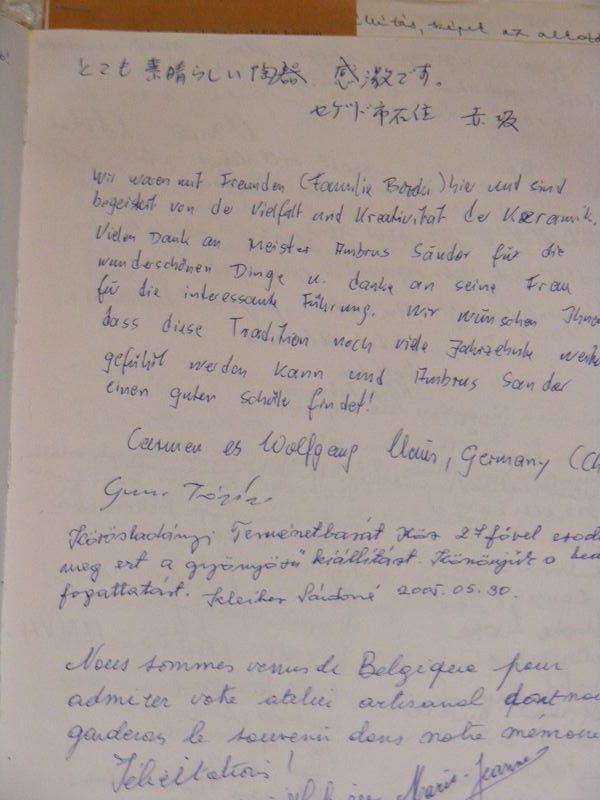 llítás, képet az
とても 素晴らしい陶器 感激です。
セゲド市在住 赤坂
Wir waren mit Freunden (Familie Borda) hier und sind
begeistert von der Vielfalt und Kreativität der Keramik.
Vielen Dank an Meister Ambrus Sándor für die
wunderschönen Dinge u. danke an seine Frau
für die interessante Führung. Wir wünschen Ihne
dass diese Tradition noch viele Jahrzehnte weite
geführt werden kann und Ambrus Sandor
einen guten Schüler findet!
Carmen es Wolfgang, Germany (Ch
Körösladányi Természetbarát Kör 27 fővel
meg ezt a gyönyörű kiállítást. Köszönjük a
fogattatást. Sándorné 2005.05.30.
Nous sommes venus de Belgique pour
admirer votre atelier artisanal dont nou
garderons le souvenir dans notre mémoire
Félicitations!
Marie-Jeanne